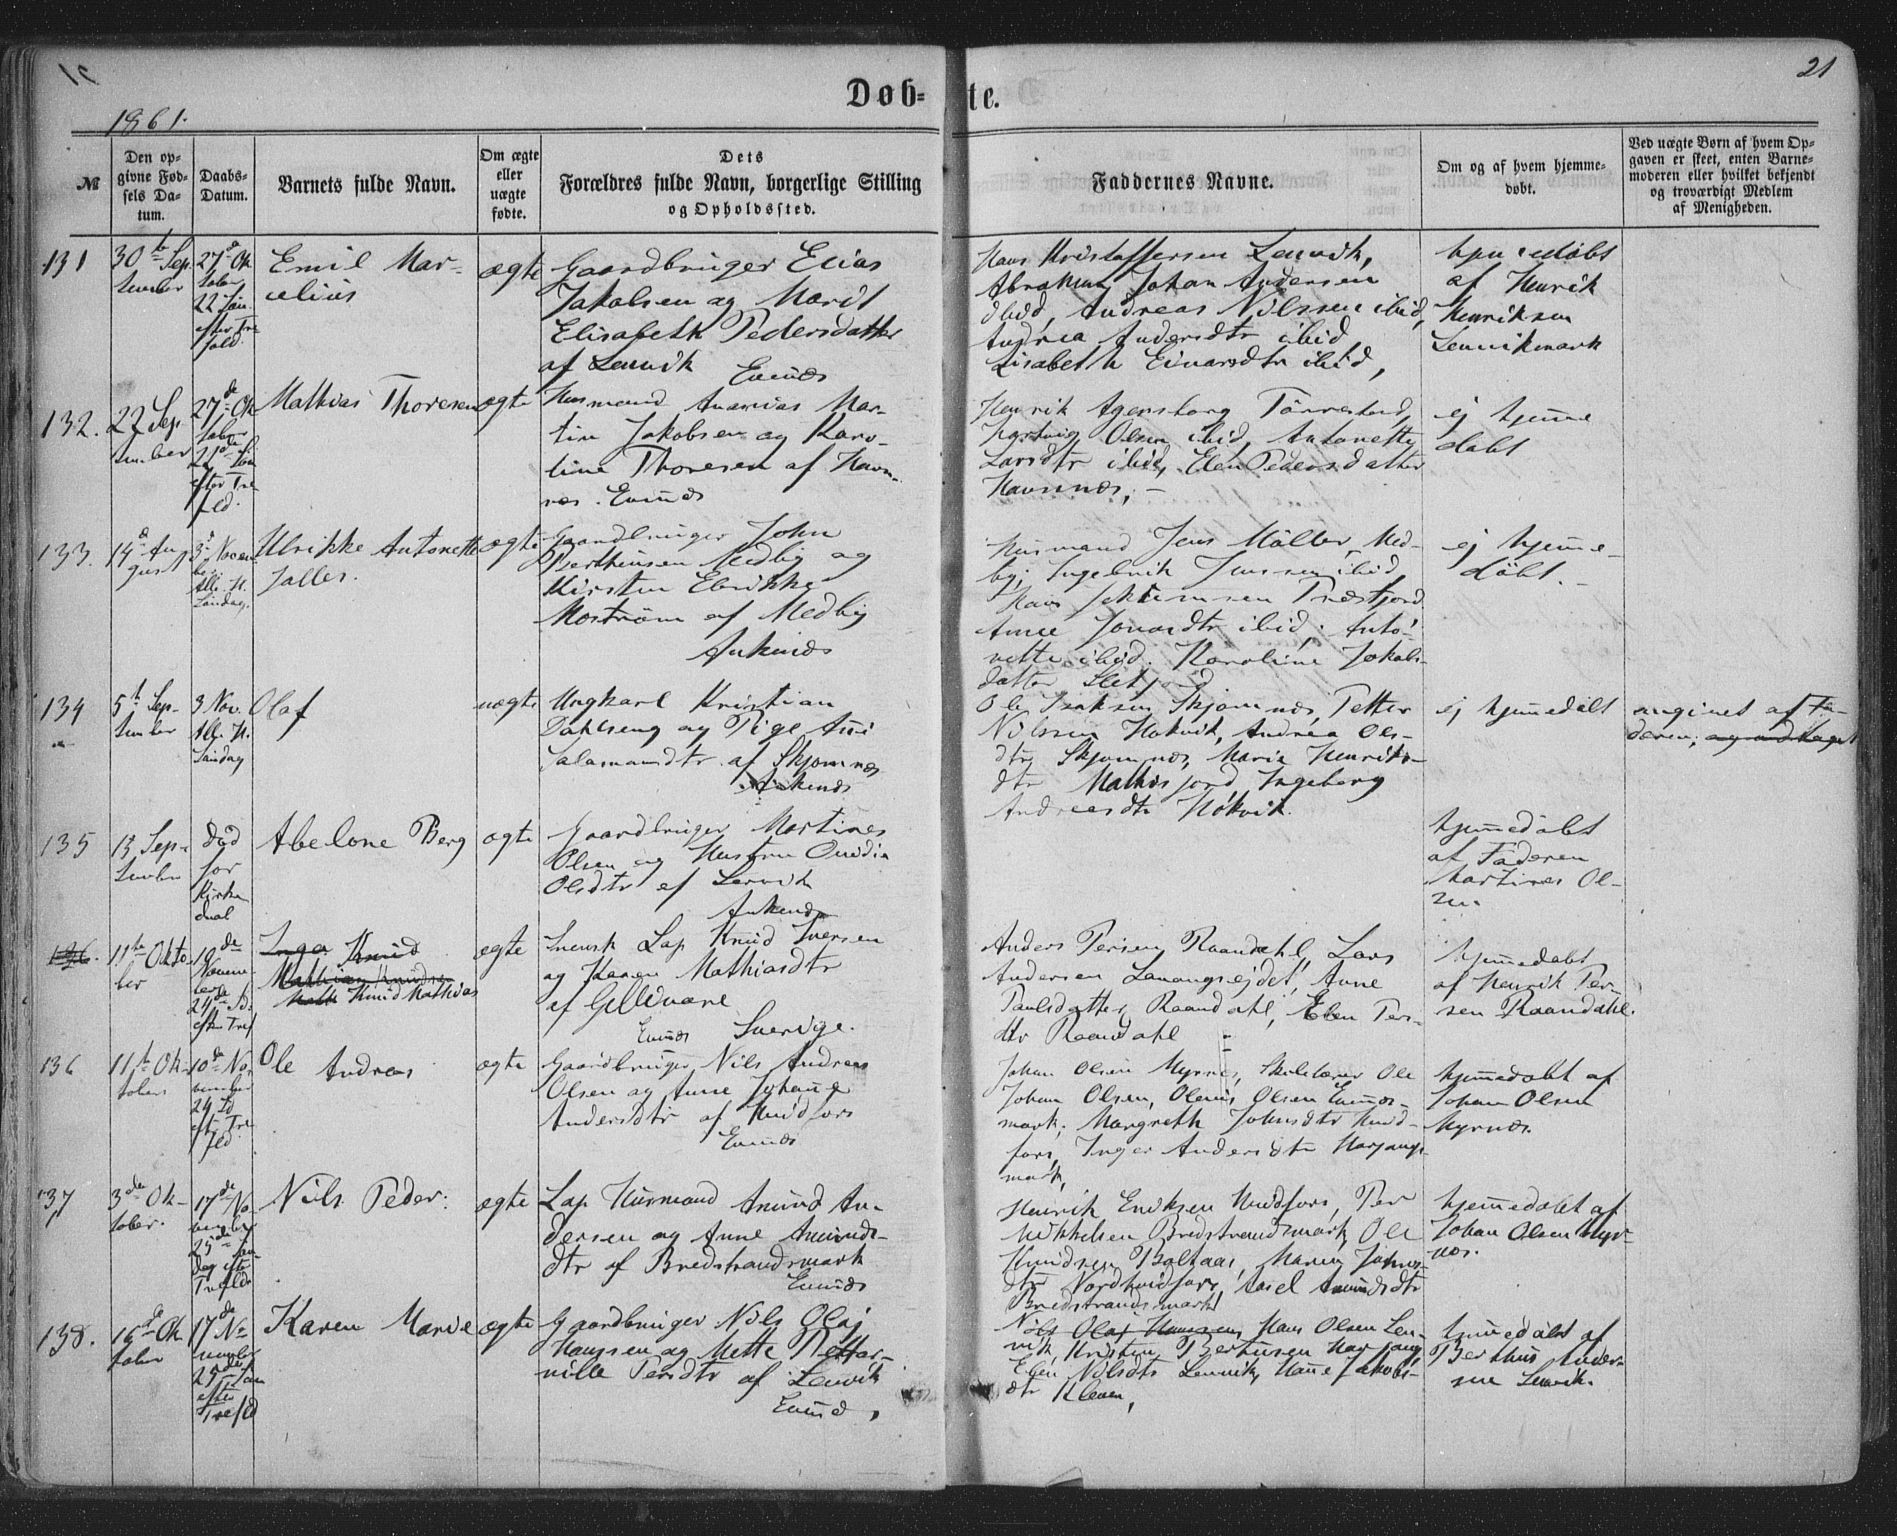 21
Døb-
te.
1861.
№
Den op-
givne Fød-
sels Da-
tum.
Daabs-
Datum.
Barnets fulde Navn.
Om ægte
eller
uægte
fødte.
Dets
Forældres fulde Navn, borgerlige Stilling
og Opholdssted.
Faddernes Navne.
Om og af hvem hjemme-
døbt.
Ved uægte Børn af hvem Op-
gaven er skeet, enten Barne-
moderen eller hvilket bekjendt
og troværdigt Medlem
af Menigheden.
131
30te Sep-
tember
27de Ok
tober
22 Søn
efter Tre
fold.
Emil Mar-
celius
ægte
Gaardbruger Elias
Jakobsen og Marit
Elisabeth Pedersdatter
af Lenvik
Evenæs
Hans Kristoffersen Lenvik,
Abraham Johan Andersen
ibid, Andreas Nilssen ibid,
Andrea Andersdtr ibid
Lisabeth Einarsdtr ibid,
af Henrik
Henriksen
Lenvikmark
132.
22 Sep
tember
27de Ok
tober
22de Søn
efter Tre
fld.
Mathias Thoresen
ægte
Husmand Ananias Mar-
tin Jakobsen og Karo-
line Thoresen af Havn-
næs. Evenæs
Henrik Agersborg Tørrestad,
Hartvig Olsen ibid, Antonette
Larsdtr ibid, Elen Pedersdatter
Havnnæs,
ej hjemme
døbt
133.
14de Au
gust
3de Novem
ber
Alle H.
Søndag.
Ulrikke Antonette
ægte
Gaardbruger John
Berthinsen Medby og
Kirsten Ulrikke
Mostrøm af Medby
Ankenæs
Husmand Jens Møller Med-
by, Ingebrik Jenssen ibid
Anne Jonasdtr ibid, Anto-
nette ibid. Karoline Jakobs-
datter
ej hjemme-
døbt.
134
5te Sep-
tember
3 Nov.
Alle H.
Søndag
Olaf
uægte
Ungkarl Kristian
og Pige Ane
Salamonsdtr af Skjomnæs
Ankenæs
Ole Isaksen Skjomnæs, Petter
Nilssen Hakvik, Andrea Ols-
dtr Skjomnæs, Maria Henriks-
dtr Ingeborg
Andreasdtr Håkvik.
ej hjemmedøbt
angivet af Fa-
deren; og
135
13 Sep-
tember
Død
før
Kirke
daab
Abelone Berg
ægte
Gaardbruger Martines
Olsen og Hustru Ovidia
Olsdtr af Lervik
Ankenæs
hjemmedøbt
af Faderen
Martines Ol-
sen.
136.
11te Okto-
ber
10de
Novem-
ber
24de Sø
efter Tref
Inga Knud
Mathias Knudsen
Knud Mathias
ægte
Svensk Lap Knud Iversen
og Karen Mathiasdtr
af Gellivare
Evenæs Sverige.
Anders Persen Raandahl, Lars
Andersen Lavangsejdet, Anne
Paulsdatter Raandahl, Elen Pers-
dtr Raandahl
hjemmedøbt
af Henrik Per-
sen Raandahl.
136
11te Ok-
tober
10de No-
vember
24 Sø
eftr Tre
fld.
Ole Andreas
ægte
Gaardbruger Nils Andreas
Olsen og Anne Johanna
Andersdtr af Hvidfors
Evenæs
Johan Olsen Myrnæs, Skolelærer Ole
Johan Olsen, Olenus Olsen Evenæs-
mark, Margreth Johnsdtr Hvid-
fors, Inger Andersdtr Herjangs-
mark,
hjemmedøbt af
Johan Olsen
Myrnæs.
137
3de Ok-
tober.
17de No-
vember
25de Søn-
dag efter
Trefold
Nils Peder.
ægte
Lap Husmand Amund An-
dersen og Anne Amunds-
dtr af Bredstrandsmark
Evenæs
Henrik Eriksen Hvidfors, Per
Mikkelsen Bredstrandsmark, Ole
Knudsen Boltaas, Maren Johns-
dtr Nordhvidfors, Amundsdtr
Bredstrandsmark
hjemmedøbt af
Johan Olsen Myr-
næs.
138.
16de Ok
tober
17de No
vember
25de Søn
efter
Trefld
Karen Marie
ægte
Gaardbruger Nils Olaj
Hanssen og Mette Pettor-
nille Persdtr af Lenvik
Evenæs
Nils Olaj Hanssen, Hans Olsen Len-
vik, Kristen Berthinsen Herjang
Elen Nilsdtr Lenvik, Hanne Jakobs-
dtr Kleven,
hjemmedøbt af
Berthus Ander-
sen Lenvik.